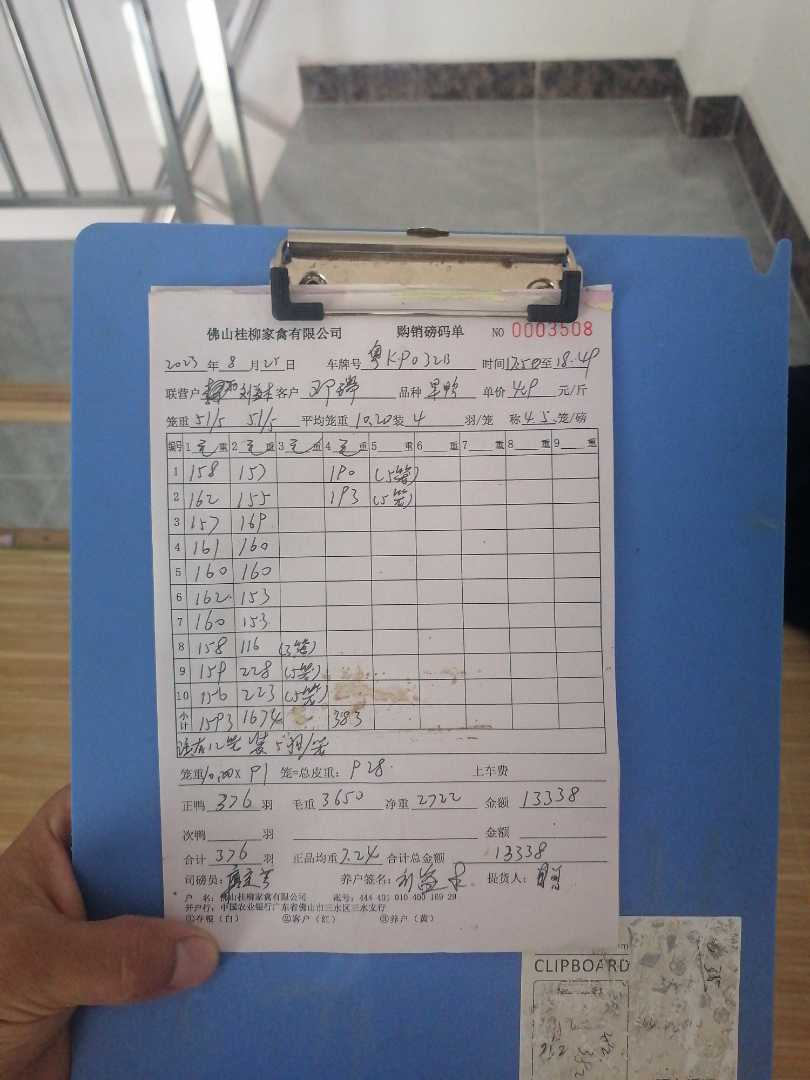 佛山桂柳家禽有限公司 购销磅码单 NO 0003508
2023 年 8 月 25 日 车牌号 粤KP032B 时间 17:50至 18:49
联营户 客户 邓 品种 单价 4.9 元/斤
笼重 51/5 51/5 平均笼重 10.20 装 4 羽/笼 称 4.5 笼/磅
编号 1 毛 重 2 毛 重 3 毛 重 4 毛 重 5 重 6 重 7 重 8 重 9 重
1 158 157 190 (5笼)
2 162 155 193 (5笼)
3 157 169
4 161 160
5 160 160
6 162 153
7 160 153
8 158 116 (3笼)
9 159 228 (5笼)
10 156 223 (5笼)
小计 1593 1674 383
有12笼 装 5羽/笼
笼重10.20X 91 笼=总皮重: 928 上车费
正鸭 376 羽 毛重 3650 净重 2722 金额 13338
次鸭 羽 金额
合计 376 羽 正品均重 7.24 合计总金额 13338
司磅员: 养户签名: 提货人:
户 名: 佛山桂柳家禽有限公司 账号: 444 491 010 400 169 29
开户行: 中国农业银行广东省佛山市三水区三水支行
①存根(白) ②客户(红) ③养户(黄)
CLIPBOARD